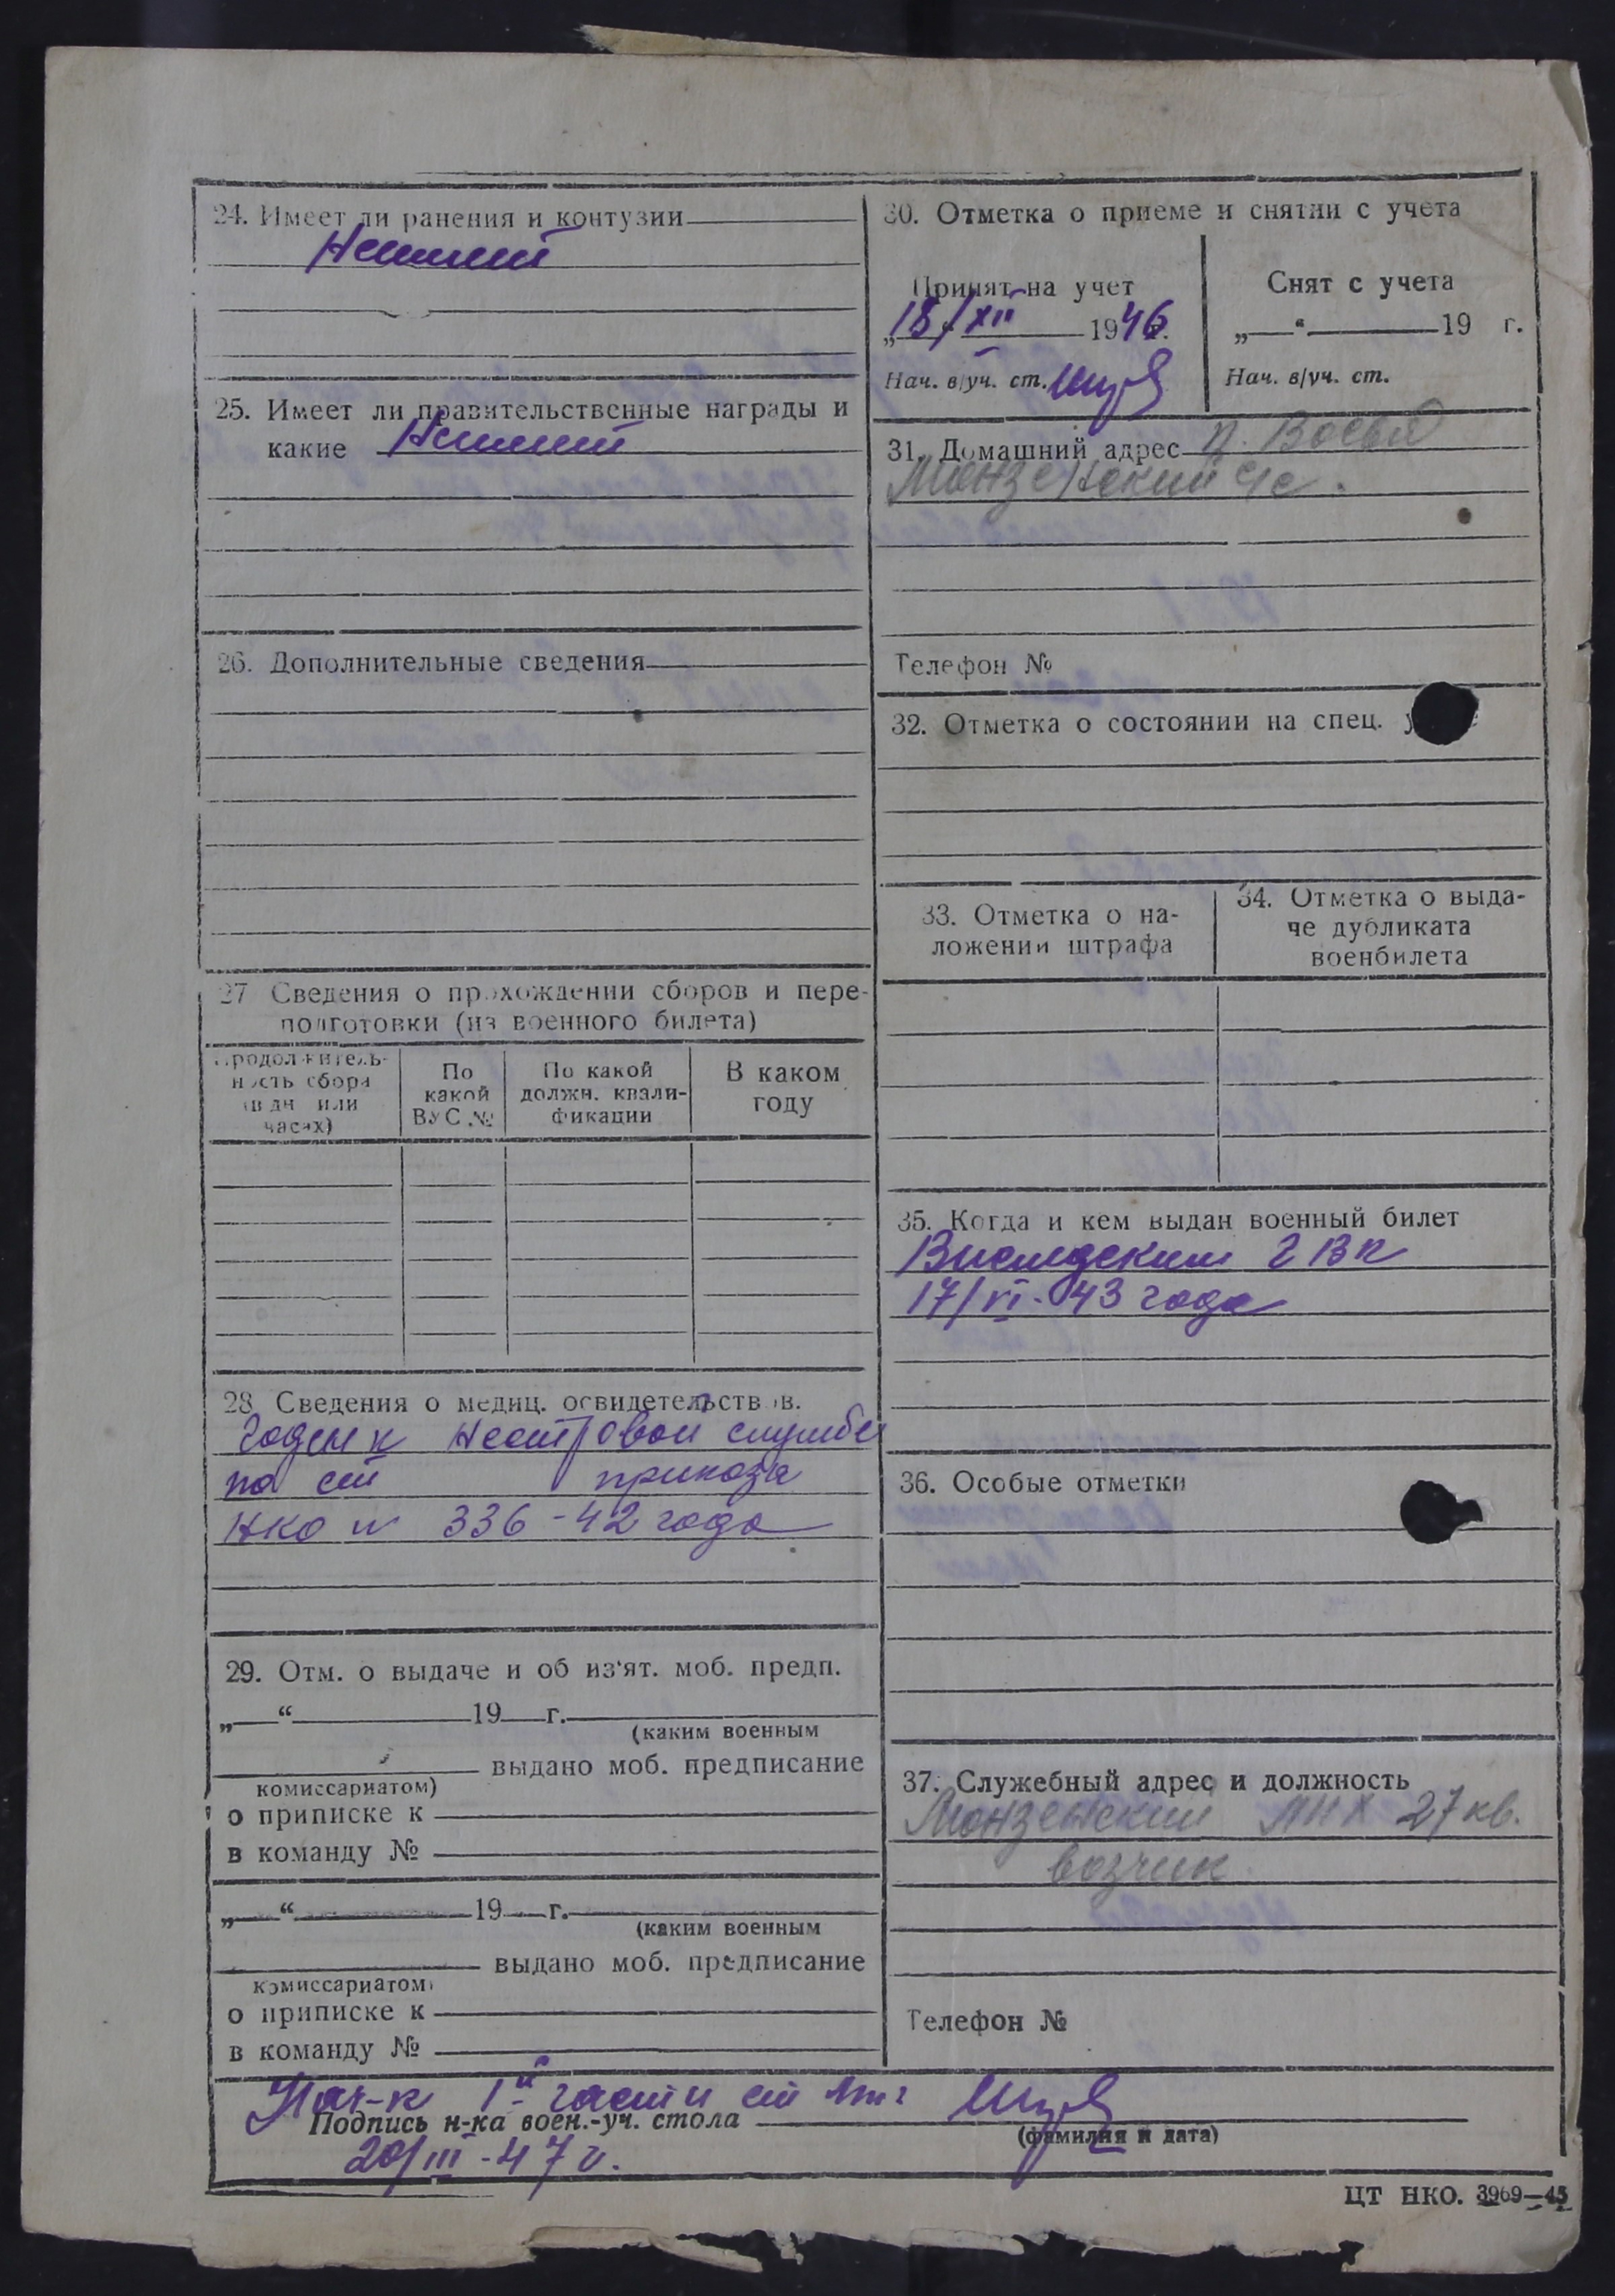 24. Имеет ли ранения и контузии
Неимеет
25. Имеет ли правительственные награды и
какие Неимеет
26. Дополнительные сведения
27 Сведения о прохождении сборов и пере-
подготовки (из военного билета)
Продолжитель-
ность сбора
(в дн или
часах)
По
какой
ВУС №
По какой
должн. квали-
фикации
В каком
году
28. Сведения о медиц. освидетельствов.
Годен к нестровой службе
по ст приказа
НКО № 336-42 года
29. Отм. о выдаче и об из‘ят. моб. предп.
„ “ 19 г.
(каким военным
выдано моб. предписание
комиссариатом)
о приписке к
в команду №
„ “ 19 г.
(каким военным
выдано моб. предписание
комиссариатом)
о приписке к
в команду №
30. Отметка о приеме и снятии с учета
Принят на учет
18/XII 1946.
Нач. в/уч. ст.
Снят с учета
„ “ 19 г.
Нач. в/уч. ст.
31. Домашний адрес п.
Монзенский
Телефон №
32. Отметка о состоянии на спец.
33. Отметка о на-
ложении штрафа
34. Отметка о выда-
че дубликата
военбилета
35. Когда и кем выдан военный билет
ГВК
17/VI-43 года
36. Особые отметки
37. Служебный адрес и должность
Монзенский ЛПХ 27 кв.
возчик
Телефон №
Нач-к 1й части
Подпись н-ка воен.-уч. стола
(фамилия и дата)
20/III-47 г.
ЦТ НКО. 3969—45